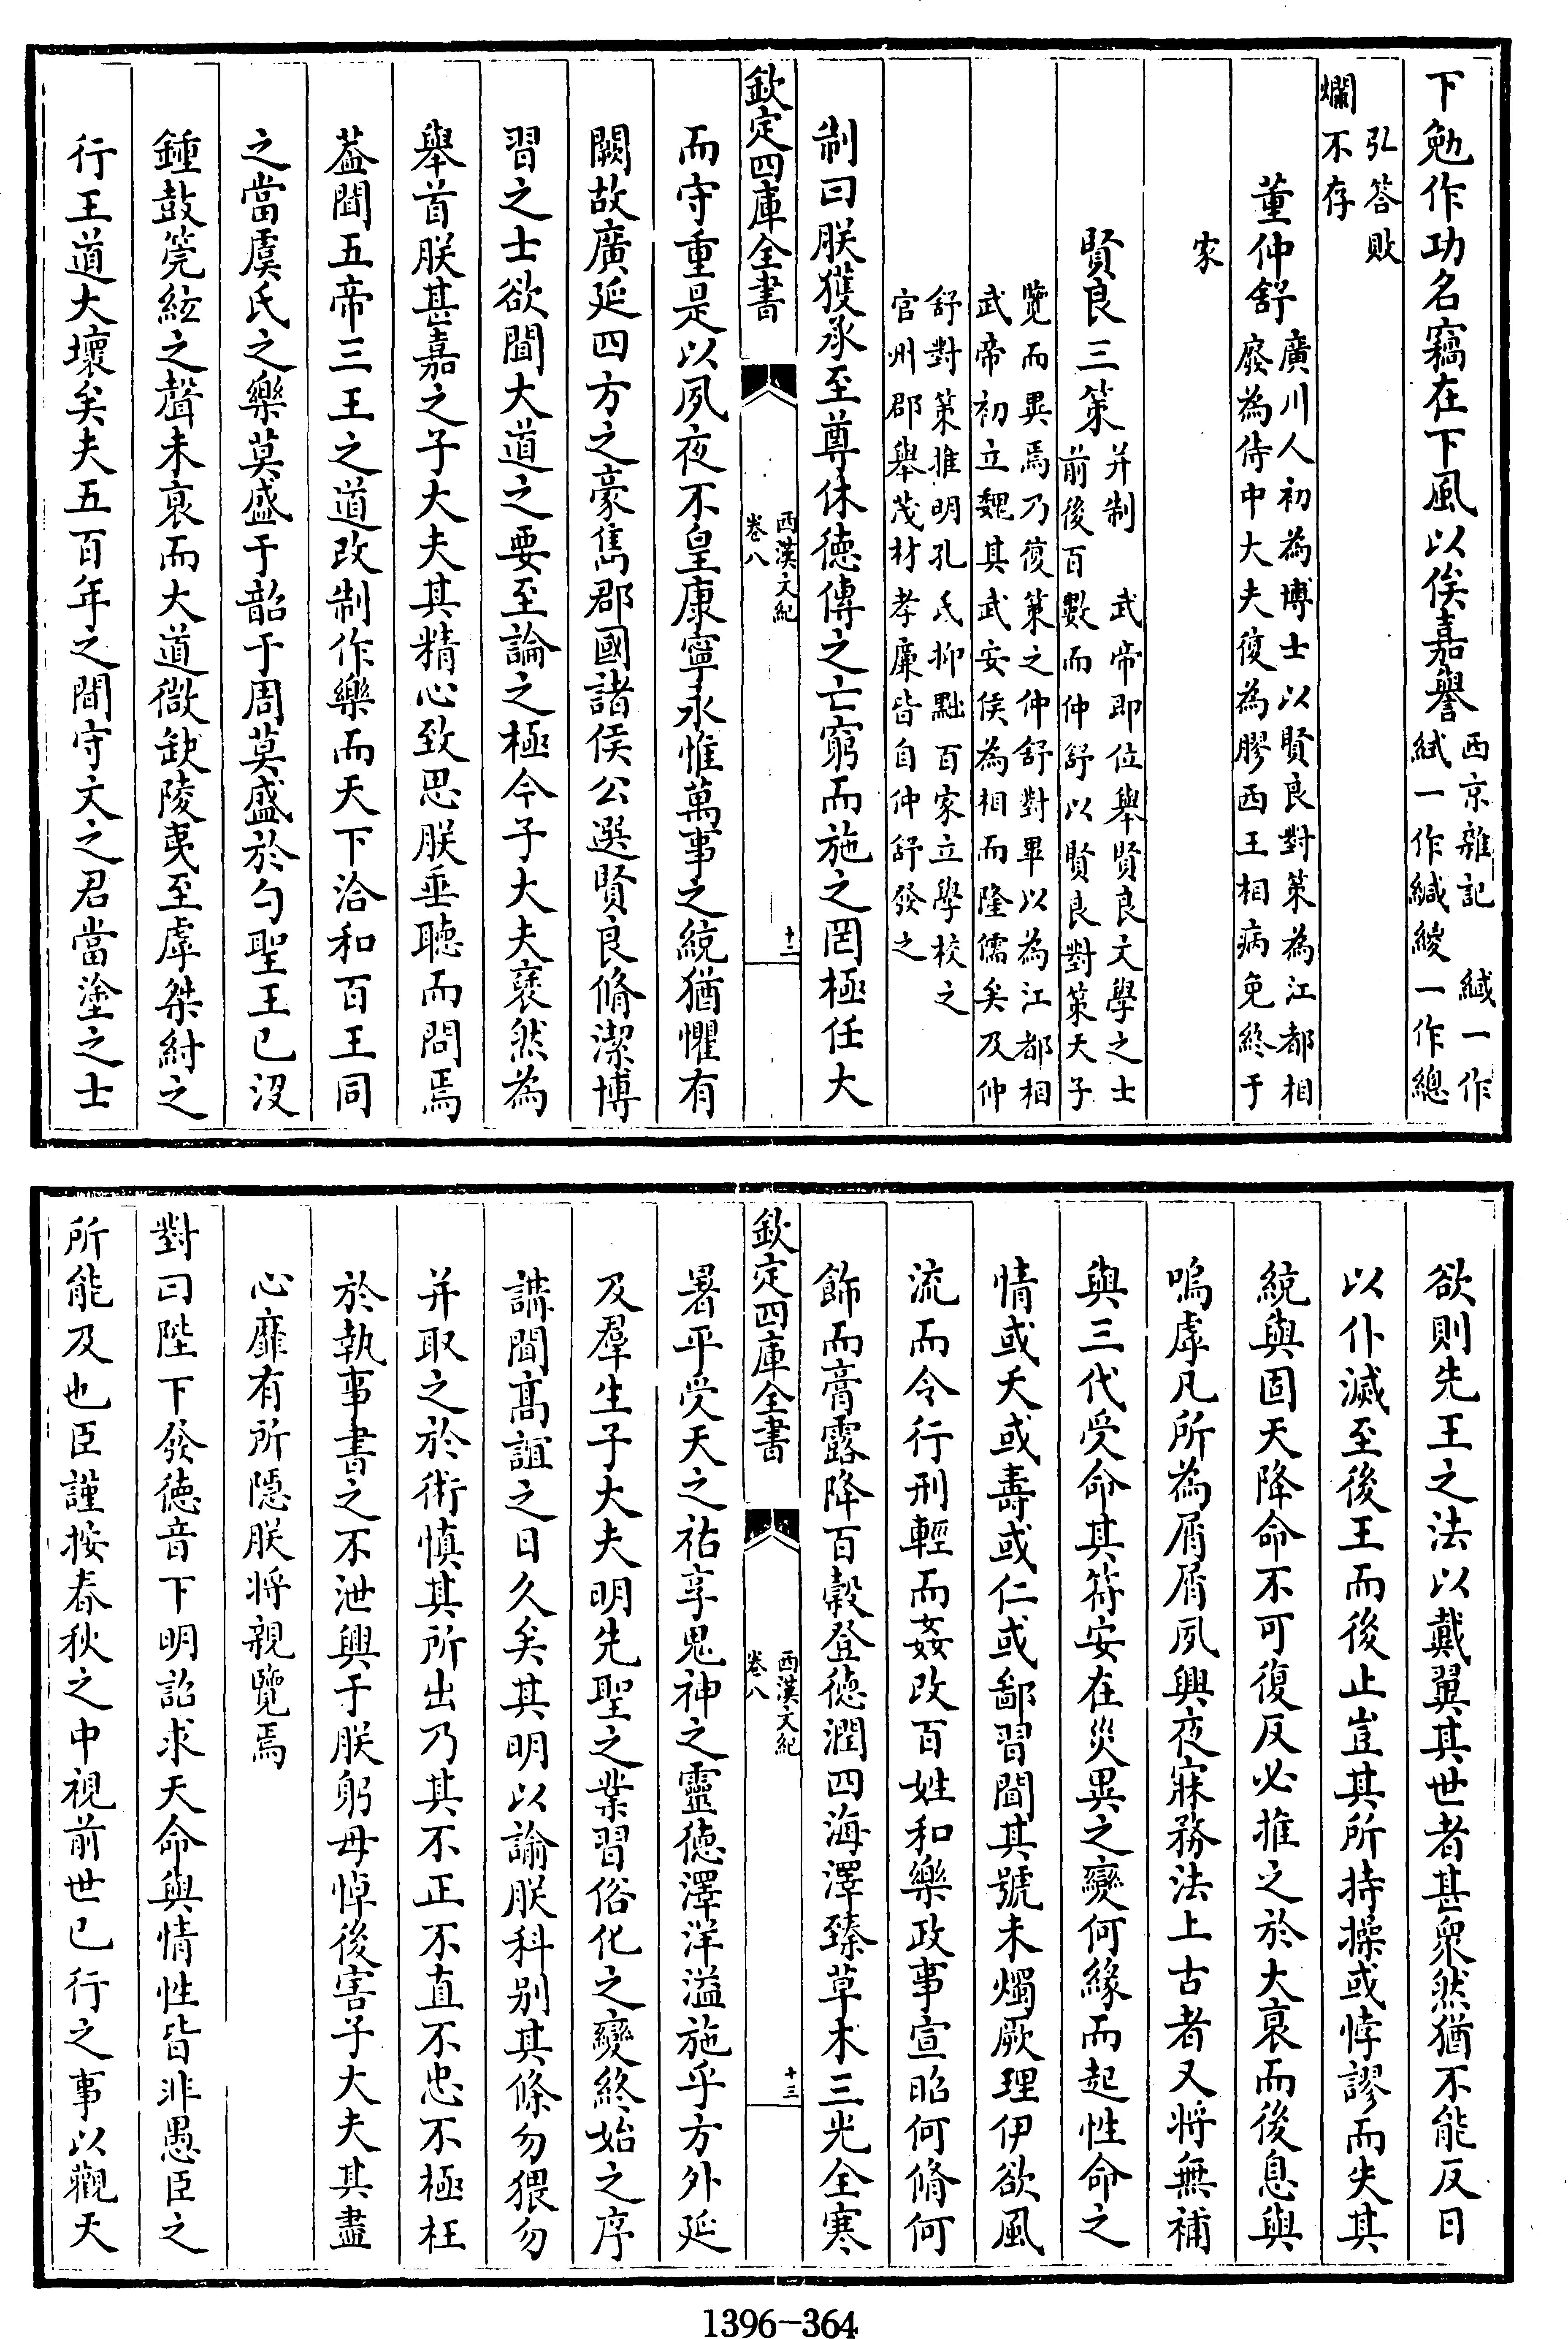 下勉作功名竊在下風以俟嘉譽西京雜記 緎一作
紩一作緘緵一作總
弘答敗
爛不存
董仲舒廣川人初為博士以賢良對策為江都相
廢為侍中大夫復為膠西王相病免終于
家
賢良三策并制 武帝即位舉賢良文學之士
前後百數而仲舒以賢良對策天子
覽而異焉乃復策之仲舒對畢以為江都相
武帝初立魏其武安侯為相而隆儒矣及仲
舒對策推明孔氏抑黜百家立學校之
官州郡舉茂材孝廉皆自仲舒發之
制曰朕獲承至尊休德傳之亡窮而施之罔極任大
欽定四庫全書
西漢文紀
卷八
十二
而守重是以夙夜不皇康寧永惟萬事之統猶懼有
闕故廣延四方之豪雋郡國諸侯公選賢良脩潔博
習之士欲聞大道之要至論之極今子大夫褎然為
舉首朕甚嘉之子大夫其精心致思朕垂聽而問焉
蓋聞五帝三王之道改制作樂而天下洽和百王同
之當虞氏之樂莫盛于韶于周莫盛於勺聖王已沒
鍾鼓筦絃之聲未衰而大道微缺陵夷至虖桀紂之
行王道大壞矣夫五百年之間守文之君當塗之士
欲則先王之法以戴翼其世者甚衆然猶不能反日
以仆滅至後王而後止豈其所持操或悖謬而失其
統與固天降命不可復反必推之於大衰而後息與
嗚虖凡所為屑屑夙興夜寐務法上古者又將無補
與三代受命其符安在災異之變何緣而起性命之
情或夭或壽或仁或鄙習聞其號未燭厥理伊欲風
流而令行刑輕而姦改百姓和樂政事宣昭何脩何
飾而膏露降百穀登德潤四海澤臻草木三光全寒
欽定四庫全書
西漢文紀
卷八
十三
暑平受天之祜享鬼神之靈德澤洋溢施乎方外延
及羣生子大夫明先聖之業習俗化之變終始之序
講聞髙誼之日久矣其明以諭朕科别其條勿猥勿
并取之於術慎其所出乃其不正不直不忠不極枉
於執事書之不泄興于朕躬毋悼後害子大夫其盡
心靡有所隱朕將親覽焉
對曰陛下發德音下明詔求天命與情性皆非愚臣之
所能及也臣謹按春秋之中視前世已行之事以觀天
1396-364